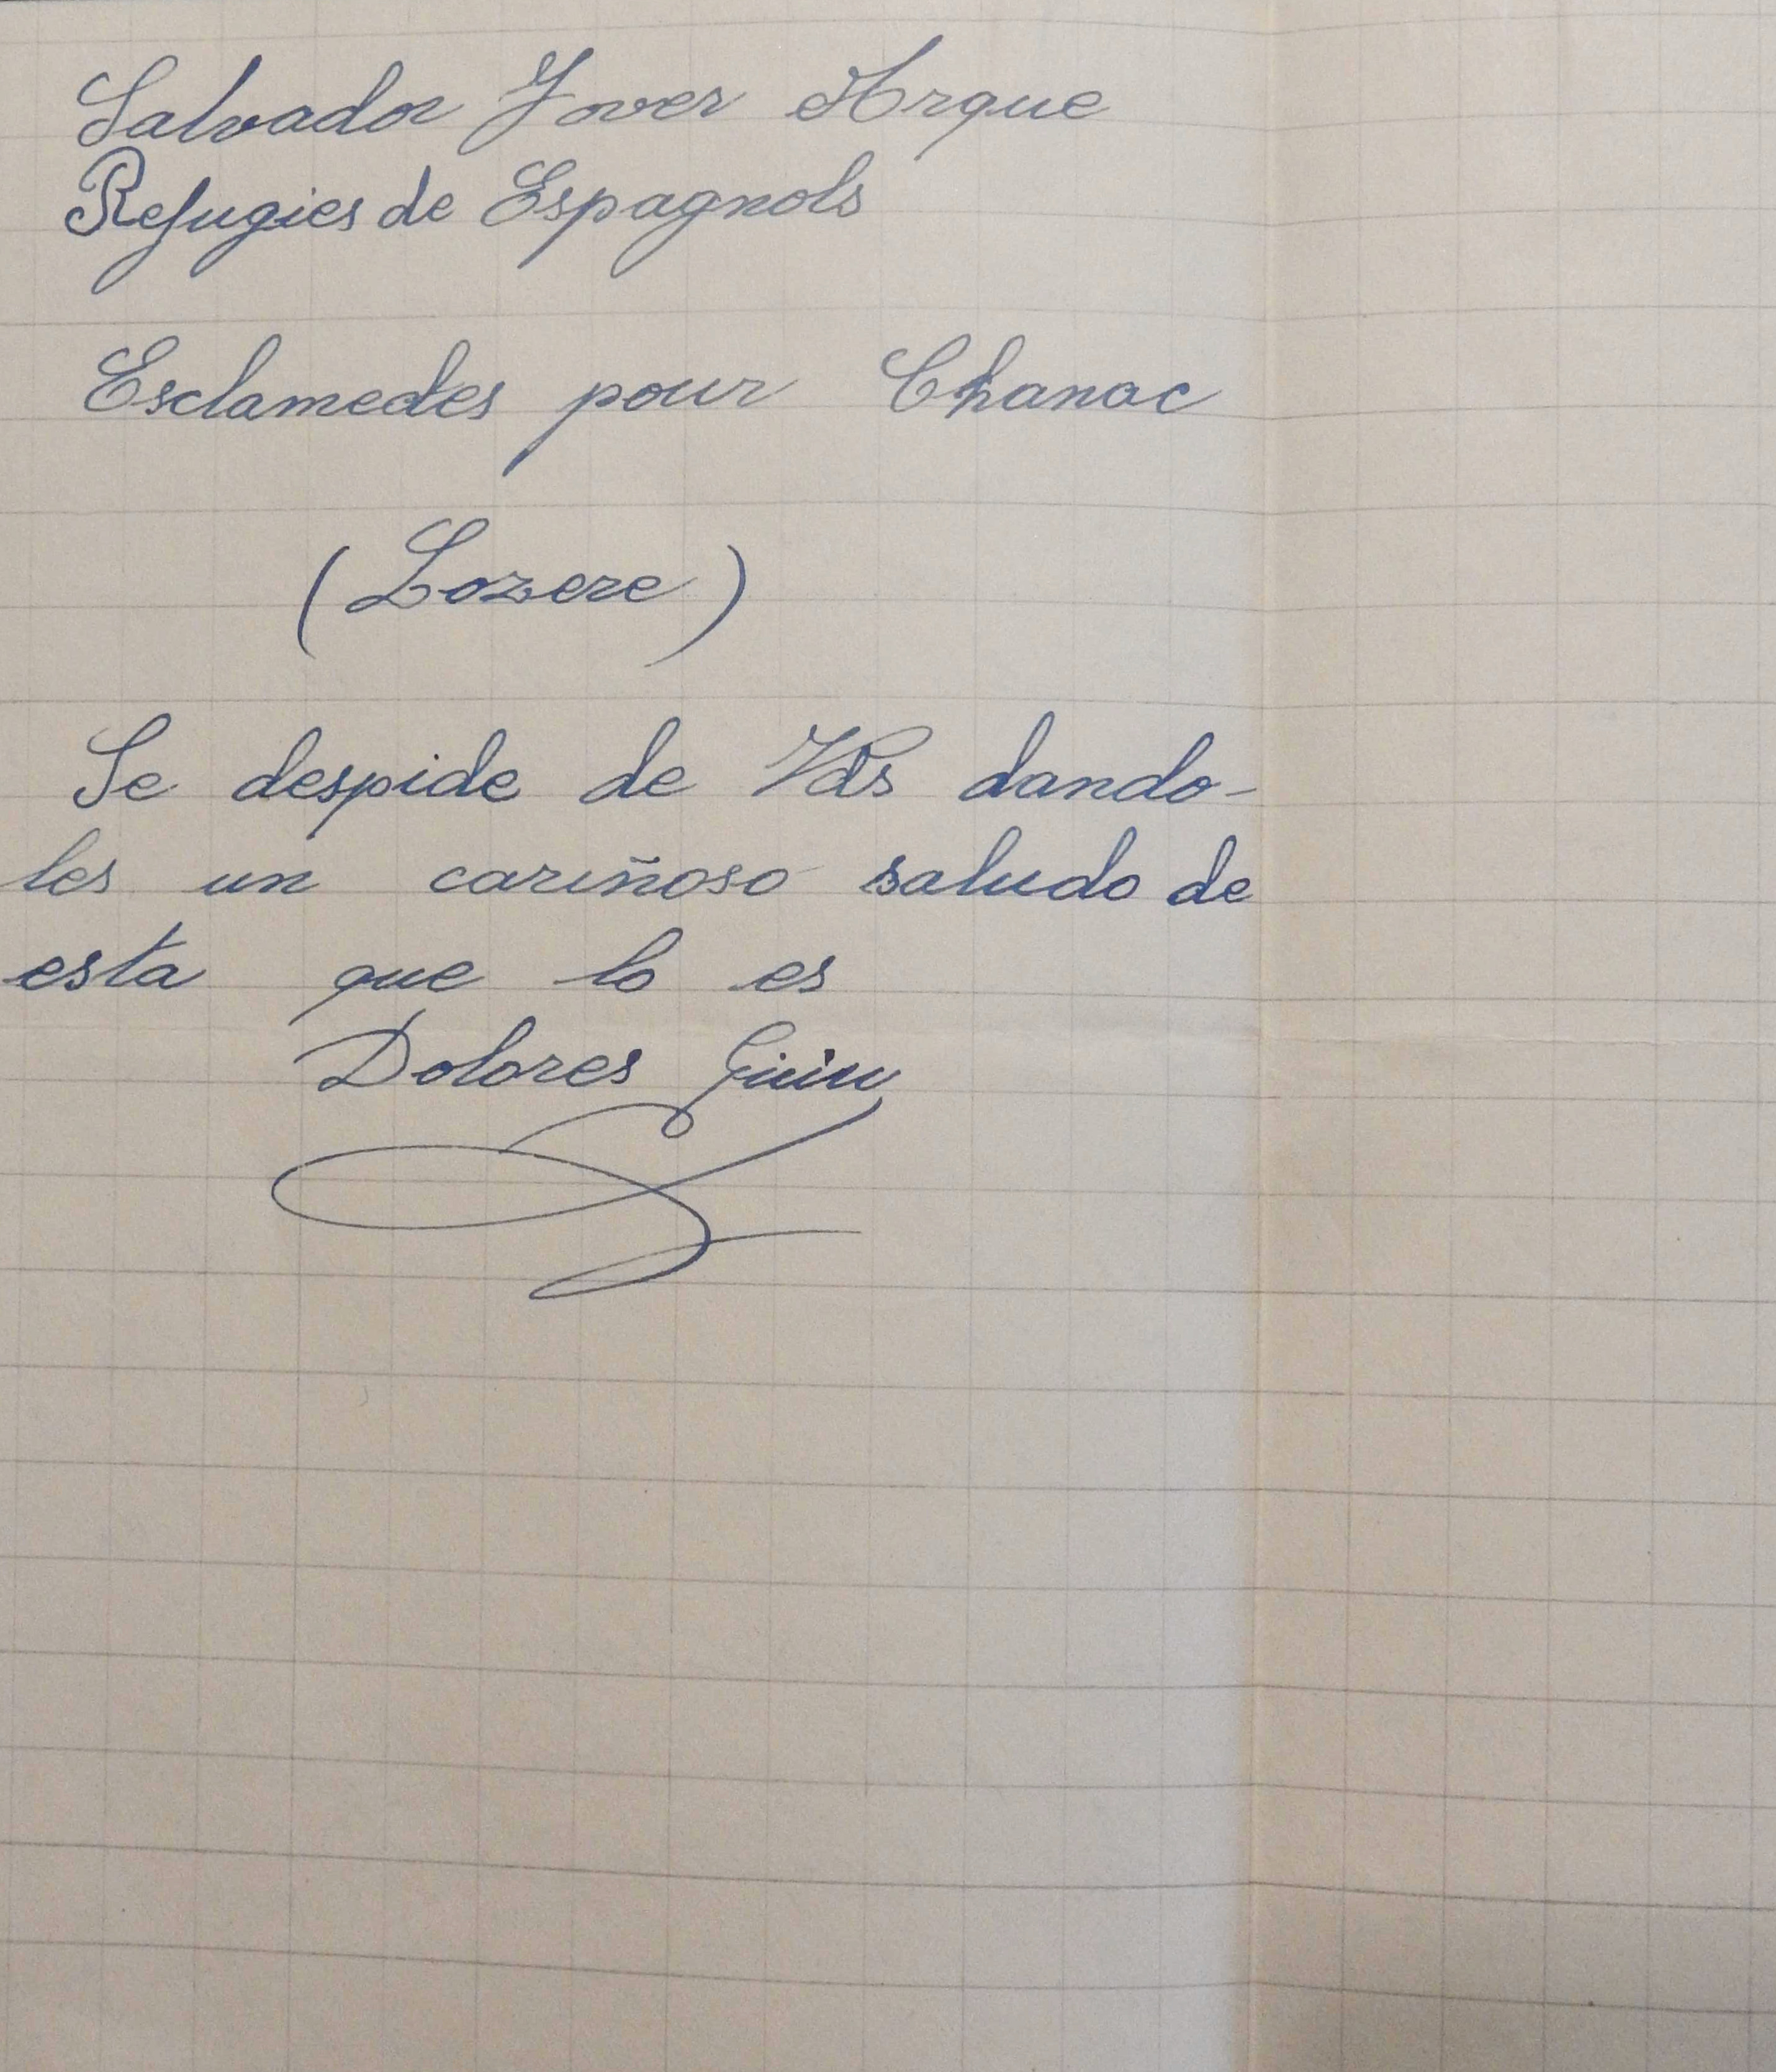 Salvador Jover Arque
Refugies de Espagnols
Esclamedes pour Chanac
(Lozere)
Se despide de Vds dando-
les un cariñoso saludo de
esta que lo es
Dolores Guiu